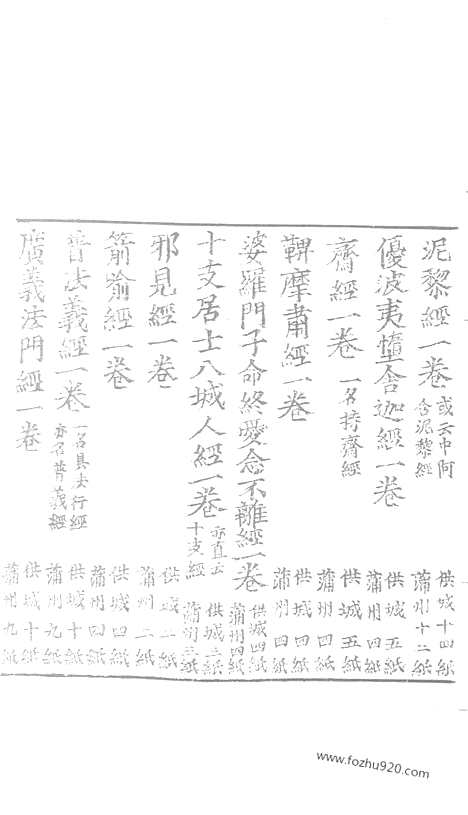 泥黎經一卷 或云中阿含泥黎經 供城十四紙 蒲州十二紙
優波夷墮舍迦經一卷 供城五紙 蒲州四紙
齋經一卷 一名持齋經 供城五紙 蒲州四紙
鞞摩肅經一卷 供城四紙 蒲州四紙
婆羅門子命終愛念不離經一卷 供城四紙 蒲州四紙
十支居士八城人經一卷 亦直云十支經 供城三紙 蒲州三紙
邪見經一卷 供城二紙 蒲州二紙
箭喻經一卷 供城四紙 蒲州四紙
普法義經一卷 一名具法行經亦名普義經 供城十紙 蒲州九紙
廣義法門經一卷 供城十紙 蒲州九紙
www.fozhu920.com